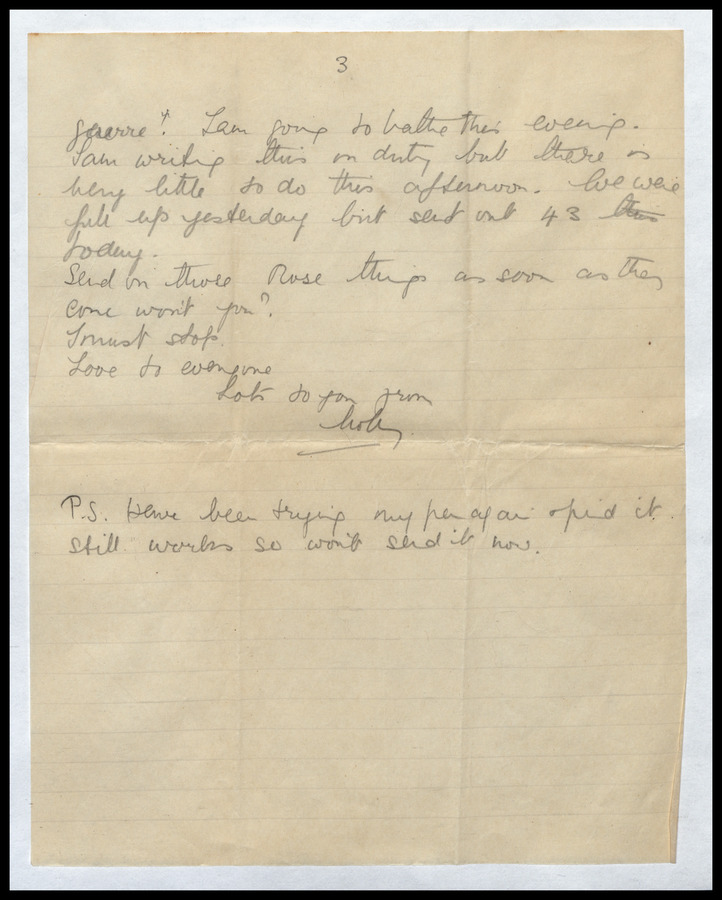 3
guerre"! I am going to bathe this evening.
I am writing this on duty but there is
very little to do this afternoon. We were
full up yesterday but sent out 43 this
today.
Send on those Rose things as soon as they
come won't you?
I must stop.
Love to everyone
Lots to you from
P.S. Have been trying my pen again & find it
still works so won't send it now.